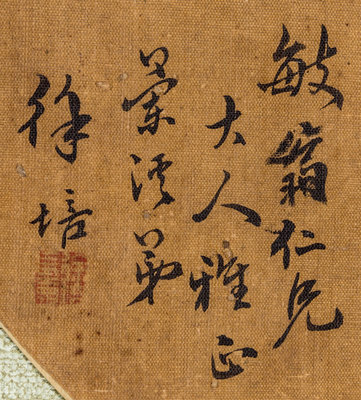 敏翁仁兄
大人雅正
蘭溪弟
徐培